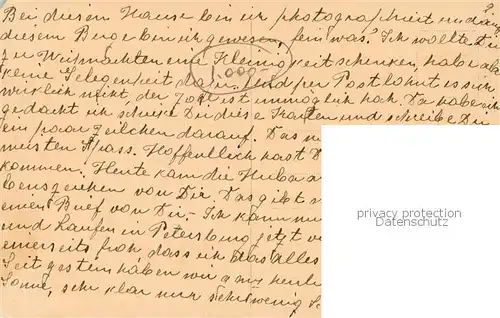 Bei diesem Hause bin ich photographiert und a
diesem Berge bin ich gewesen, fein was? Ich wollte Dir
zu Weihnachten eine Kleinigkeit schenken, habe aber
keine Gelegenheit dazu. Und per Post lohnt es sich
1.000-
wirklich nicht, der Zoll ist unmöglich hoch. Da habe ich
gedacht ich schicke Dir diese Karten und schreibe Dir
ein paar Zeilchen darauf. Das m
meisten Spass. Hoffentlich hast D
kommen. Heute kam die Huba a
benszeichen von Dir. Das gibt
einen Brief von Dir. Ich kann nur
und Laufen in Petersburg jetzt
einerseits froh dass ich das alles
Seit gestern haben wir ganz
Sonne, sehr klar nur sehr wenig S
privacy protection
www.oldthing.com